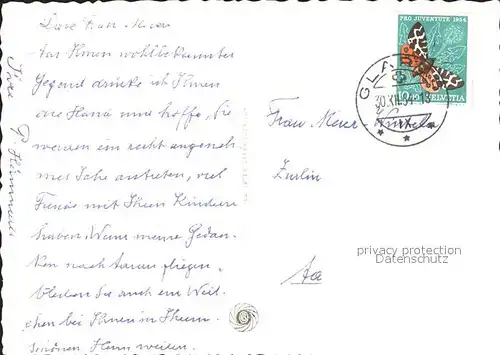 Liebe Frau Meier
Aus Ihnen wohlbekannter
Gegend drücke ich Ihnen
die Hand und hoffe, Sie
werden ein recht angeneh-
mes Jahr antreten, viel
Freude mit Ihren Kindern
haben. Wenn meine Gedan-
ken nach Aarau fliegen,
bleiben Sie auch ein Weil-
chen bei Ihnen in Ihrem
schönen Heim weilen.
Ihre P.
PRO JUVENTUTE 1954
10+10 HELVETIA
GLA
30.XII.54-18
Frau Meier-
Zurlin
privacy protection
Datenschutz